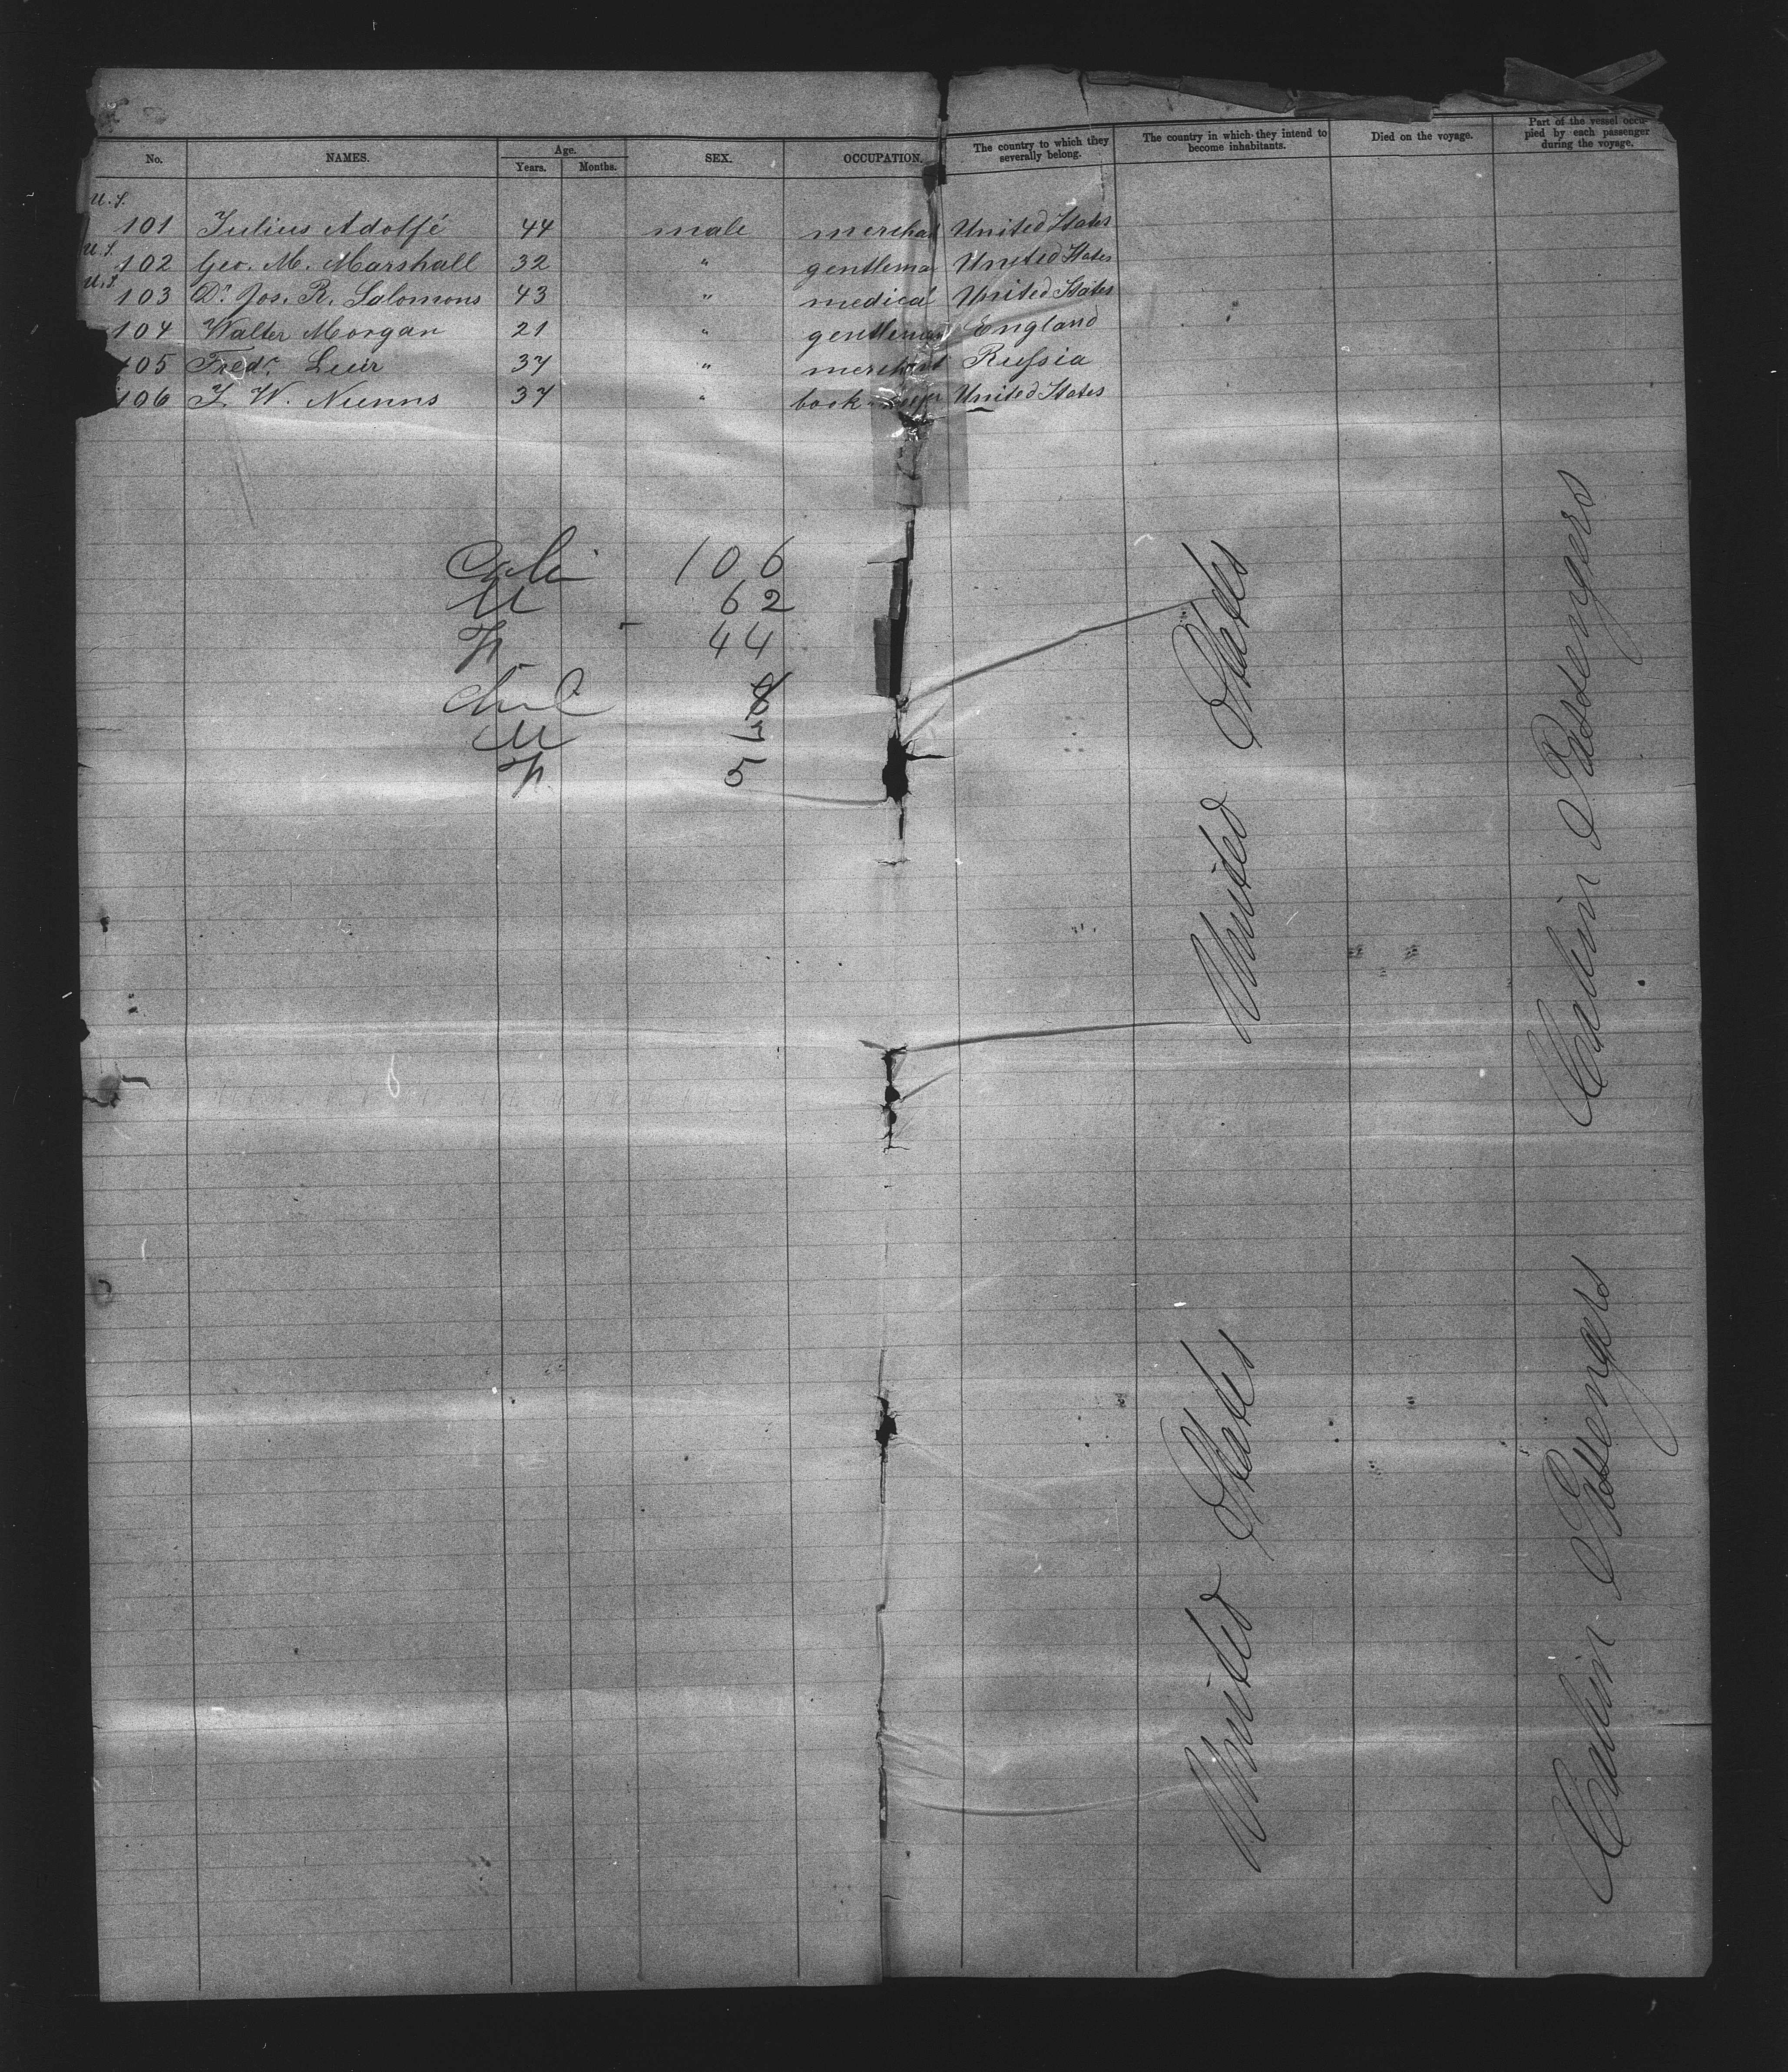 No. NAMES. Age. Years. Months. SEX. OCCUPATION. The country to which they severally belong. The country in which they intend to become inhabitants. Died on the voyage. Part of the vessel occupied by each passenger during the voyage.
U.S.
101 Julius Adolfé 44 male merchan United States
U.S.
102 Geo. M. Marshall 32 " gentleman United States
U.S.
103 Dr. Jos. R. Salomons 43 " medical United States
104 Walter Morgan 21 " gentleman England
105 Fredr. 37 " merchant Russia
106 J. W. Nunns 37 " book-keeper United States
Cabin 106
M 62
F 44
Chil
M
F 5
United States
Cabin Passengers
United States
Cabin Passengers